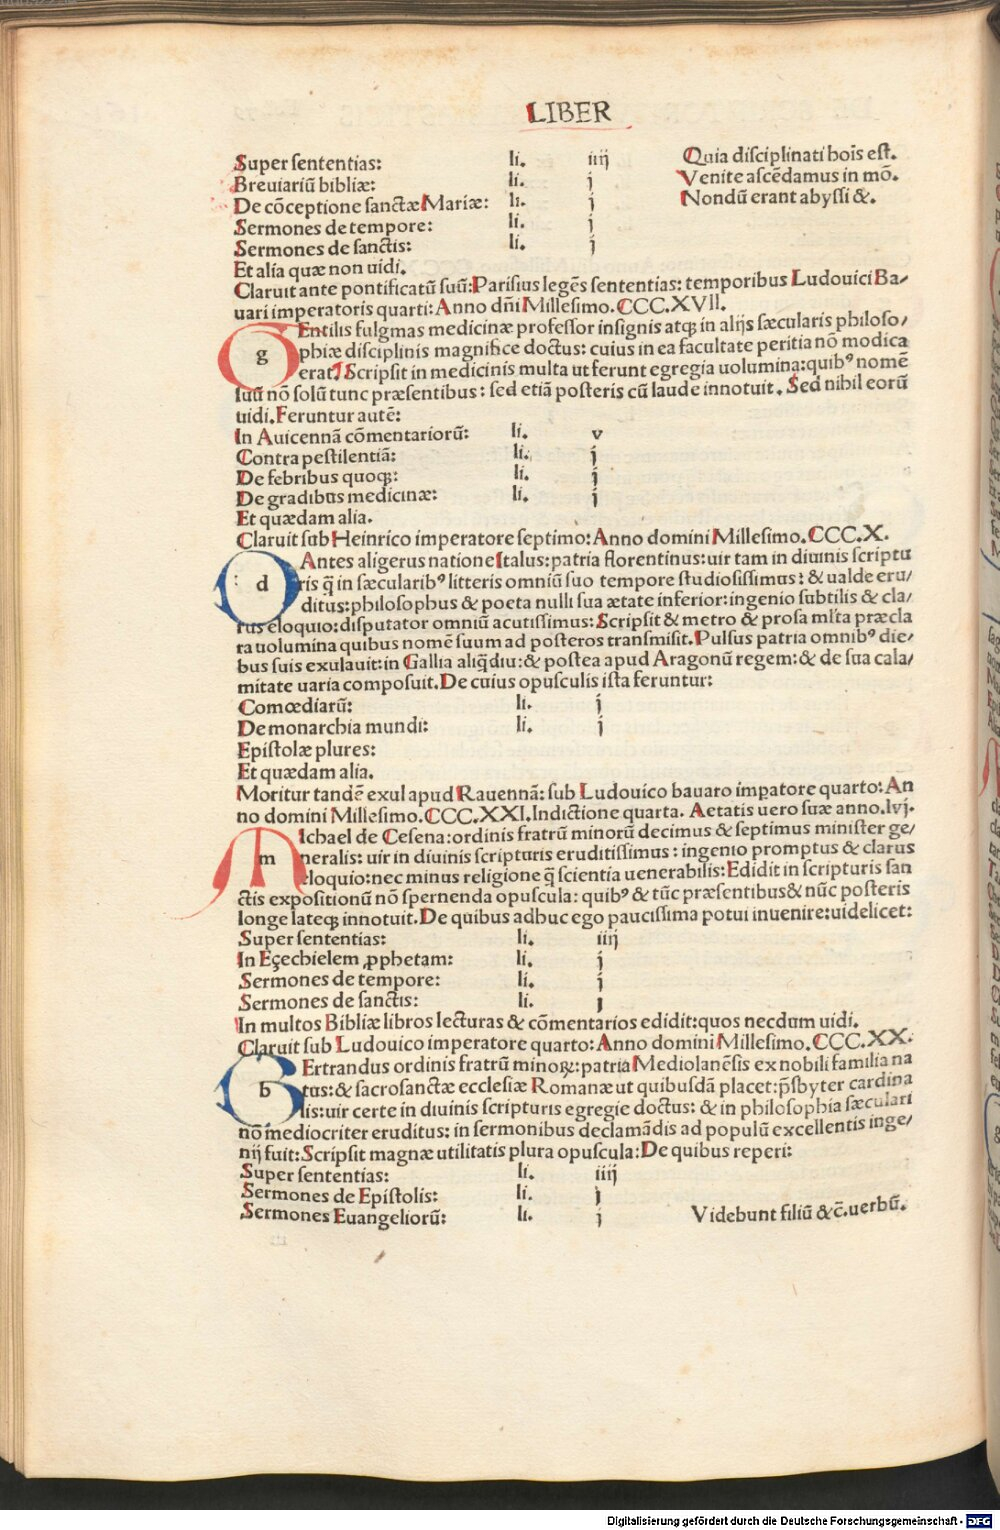 LIBER
Super sententias: li. iiij Quia disciplinati hoīs est.
Breviariū bibliæ: li. j Venite ascēdamus in mō.
De cōceptione sanctæ Mariæ: li. j Nondū erant abyssi &.
Sermones de tempore: li. j
Sermones de sanctis: li. j
Et alia quæ non uidi.
Claruit ante pontificatū suū: Parisius legēs sententias: temporibus Ludouici Ba/
uari imperatoris quarti: Anno dñi Millesimo. CCC.XVII.
g Entilis fulgmas medicinæ professor insignis atq; in alijs sæcularis philoso/
phiæ disciplinis magnifice doctus: cuius in ea facultate peritia nō modica
erat. Scripsit in medicinis multa ut ferunt egregia uolumina: quibꝰ nomē
suū nō solū tunc præsentibus: sed etiā posteris cū laude innotuit. Sed nihil eorū
uidi. Feruntur autē:
In Auicennā cōmentariorū: li. v
Contra pestilentiā: li. j
De febribus quoq;: li. j
De gradibus medicinæ: li. j
Et quædam alia.
Claruit sub Heinrico imperatore septimo: Anno domini Millesimo. CCC.X.
d Antes aligerus natione Italus: patria florentinus: uir tam in diuinis scriptu
ris q̄ in sæcularibꝰ litteris omniū suo tempore studiosissimus: & ualde eru/
ditus: philosophus & poeta nulli sua ætate inferior: ingenio subtilis & cla/
rus eloquio: disputator omniū acutissimus: Scripsit & metro & prosa mĺta præcla
ra uolumina quibus nomē suum ad posteros transmisit. Pulsus patria omnibꝰ die/
bus suis exulauit: in Gallia aliq̄diu: & postea apud Aragonū regem: & de sua cala/
mitate uaria composuit. De cuius opusculis ista feruntur:
Comœdiarū: li. j
De monarchia mundi: li. j
Epistolæ plures:
Et quædam alia.
Moritur tandē exul apud Rauennā: sub Ludouico bauaro impatore quarto: An
no domini Millesimo. CCC.XXI. Indictione quarta. Aetatis uero suæ anno. lvj.
m Ichael de Cesena: ordinis fratrū minorū decimus & septimus minister ge/
neralis: uir in diuinis scripturis eruditissimus: ingenio promptus & clarus
eloquio: nec minus religione q̄ scientia uenerabilis: Edidit in scripturis san
ctis expositionū nō spernenda opuscula: quibꝰ & tūc præsentibus & nūc posteris
longe lateq; innotuit. De quibus adhuc ego paucissima potui inuenire: uidelicet:
Super sententias: li. iiij
In Eçechielem ꝓphetam: li. j
Sermones de tempore: li. j
Sermones de sanctis: li. j
In multos Bibliæ libros lecturas & cōmentarios edidit: quos necdum uidi.
Claruit sub Ludouico imperatore quarto: Anno domini Millesimo. CCC.XX.
b Ertrandus ordinis fratrū minoꝝ: patria Mediolanēsis ex nobili familia na
tus: & sacrosanctæ ecclesiæ Romanæ ut quibusdā placet: p̄sbyter cardina
lis: uir certe in diuinis scripturis egregie doctus: & in philosophia sæculari
nō mediocriter eruditus: in sermonibus declamādis ad populū excellentis inge/
nij fuit: Scripsit magnæ utilitatis plura opuscula: De quibus reperi:
Super sententias: li. iiij
Sermones de Epistolis: li. j
Sermones Euangeliorū: li. j Videbunt filiū & c̄. uerbū.
Digitalisierung gefördert durch die Deutsche Forschungsgemeinschaft - DFG